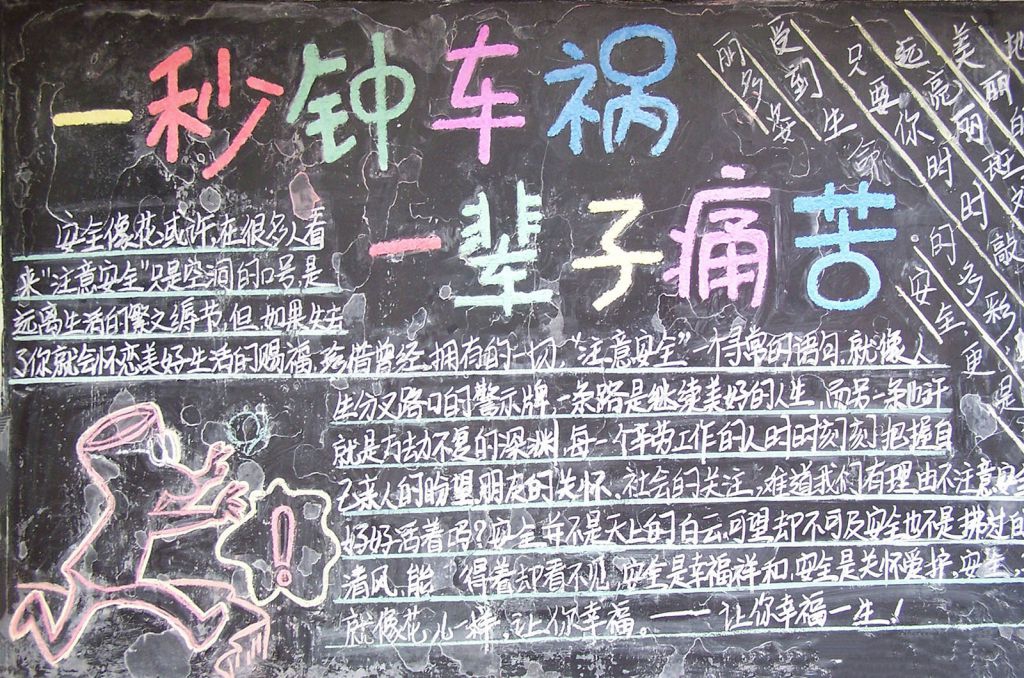 一秒钟车祸
一辈子痛苦
安全像花,或许,在很多人看
来"注意安全"只是空洞的口号,是
远离生活的繁文缛节,但,如果失去
了你就会怀恋美好生活的赐福,珍惜曾经,拥有的一切,"注意安全"一个寻常的语句,就像人
生分叉路口的警示牌,一条路是继续美好的人生,而另一条
就是万劫不复的深渊,每一个辛劳工作的人时时刻刻把握自
己亲人的盼望朋友的关怀、社会的关注,难道我们有理由不注意安全
好好活着吗?安全并不是天上的白云,可望却不可及安全也不是拂过的
清风,能 得着却看不见,安全是幸福祥和,安全是关怀爱护,安全,
就像花儿一样,让你幸福。——让你幸福一生!
美丽的
更多彩
亮丽 时时 的安全
只要你
受到生命